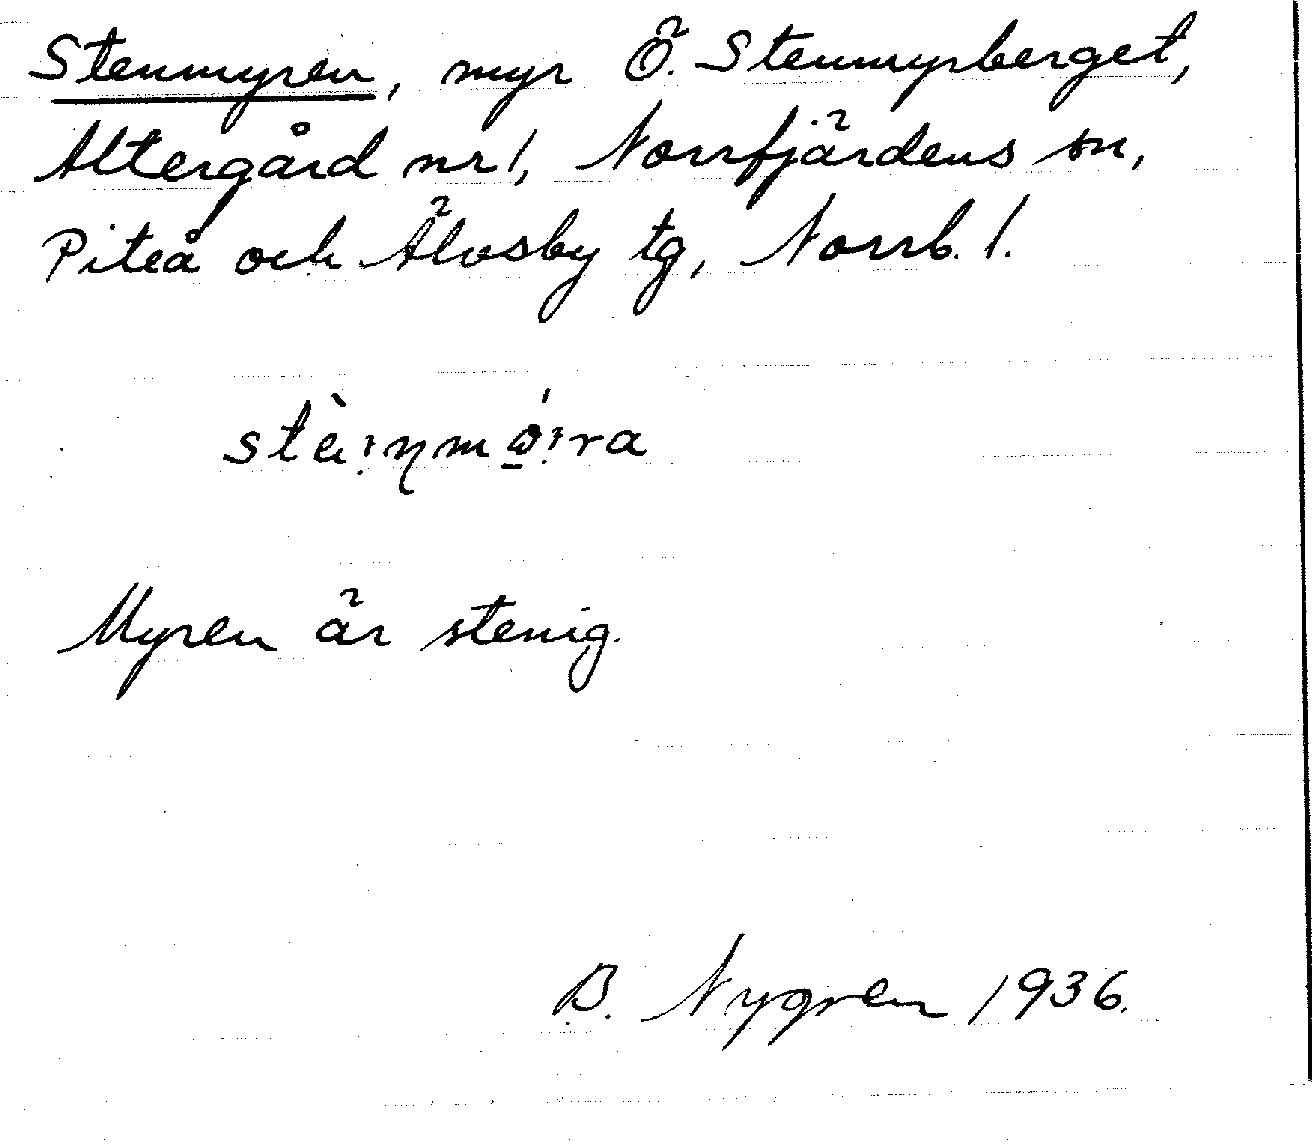 Stenmyren, myr Ö. Stenmyrberget,
Altergård nr 1, Norrfjärdens sn,
Piteå och Älvsby tg, Norrb. l.
Myren är stenig.
B. Nygren 1936.